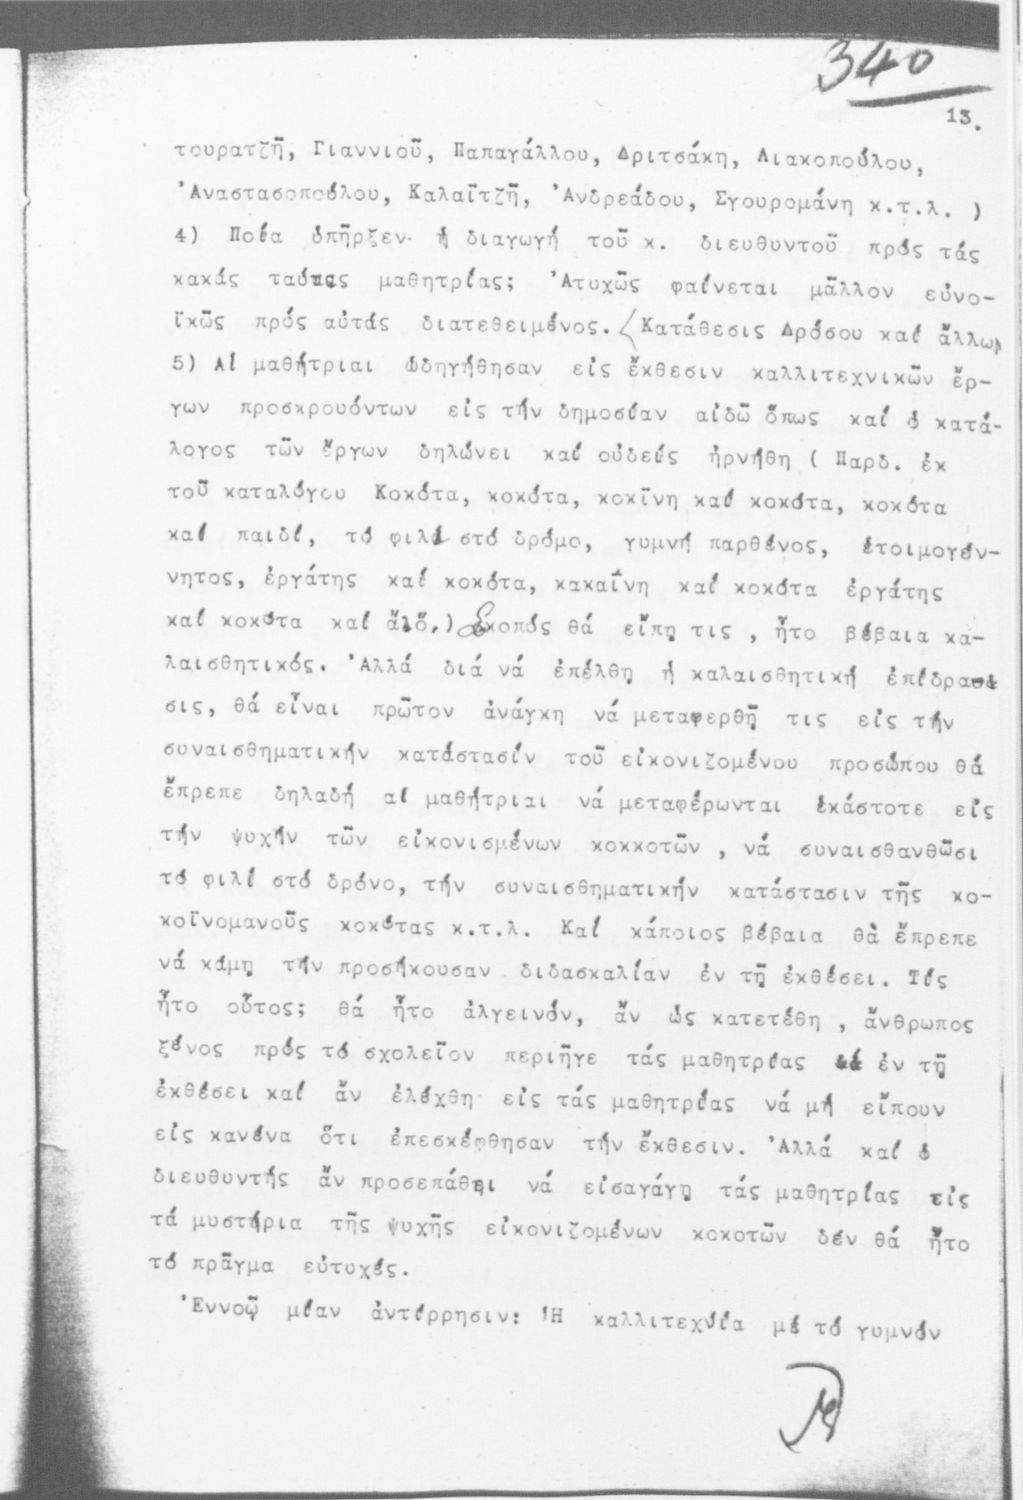 340
13.
τουρατζῆ, Γιαννιοῦ, Παπαγάλλου, Δριτσάκη, Λιακοπούλου,
Ἀναστασοπούλου, Καλαϊτζῆ, Ἀνδρεάδου, Σγουρομάνη κ.τ.λ. )
4) Ποία ὑπῆρξεν ἡ διαγωγή τοῦ κ. διευθυντοῦ πρός τάς
κακάς ταύτας μαθητρίας; Ἀτυχῶς φαίνεται μᾶλλον εὐνο-
ϊκῶς πρός αὐτάς διατεθειμένος. (Κατάθεσις Δρόσου καί ἄλλων)
5) Αἱ μαθήτριαι ὡδηγήθησαν εἰς ἔκθεσιν καλλιτεχνικῶν ἔρ-
γων προσκρουόντων εἰς τήν δημοσίαν αἰδῶ ὅπως καί ὁ κατά-
λογος τῶν ἔργων δηλώνει καί οὐδείς ἠρνήθη ( Παρδ. ἐκ
τοῦ καταλόγου Κοκότα, κοκότα, κοκῖνη καί κοκότα, κοκότα
καί παιδί, τό φιλί στό δρόμο, γυμνή παρθένος, ἑτοιμογέν-
νητος, ἐργάτης καί κοκότα, κακαΐνη καί κοκότα ἐργάτης
καί κοκότα καί ἄλλ.) Σκοπός θά εἴπῃ τις , ἦτο βέβαια κα-
λαισθητικός. Ἀλλά διά νά ἐπέλθῃ ἡ καλαισθητική ἐπίδρα-
σις, θά εἶναι πρῶτον ἀνάγκη νά μεταφερθῇ τις εἰς τήν
συναισθηματικήν κατάστασίν τοῦ εἰκονιζομένου προσώπου θά
ἔπρεπε δηλαδή αἱ μαθήτριαι νά μεταφέρωνται ἑκάστοτε εἰς
τήν ψυχήν τῶν εἰκονισμένων κοκκοτῶν , νά συναισθανθῶσι
τό φιλί στό δρόνο, τήν συναισθηματικήν κατάστασιν τῆς κο-
κοϊνομανοῦς κοκότας κ.τ.λ. Καί κάποιος βέβαια θὰ ἔπρεπε
νά κάμῃ τήν προσήκουσαν διδασκαλίαν ἐν τῇ ἐκθέσει. Τίς
ἦτο οὗτος; θά ἦτο ἀλγεινόν, ἄν ὡς κατετέθη , ἄνθρωπος
ξένος πρός τό σχολεῖον περιῆγε τάς μαθητρίας ἐν τῇ
ἐκθέσει καί ἄν ἐλέχθη εἰς τάς μαθητρίας νά μή εἴπουν
εἰς κανένα ὅτι ἐπεσκέφθησαν τήν ἔκθεσιν. Ἀλλά καί ὁ
διευθυντής ἄν προσεπάθει νά εἰσαγάγῃ τάς μαθητρίας εἰς
τά μυστήρια τῆς ψυχῆς εἰκονιζομένων κοκοτῶν δέν θά ἦτο
τό πρᾶγμα εὐτυχές.
Ἐννοῶ μίαν ἀντίρρησιν: Ἡ καλλιτεχνία μέ τό γυμνόν